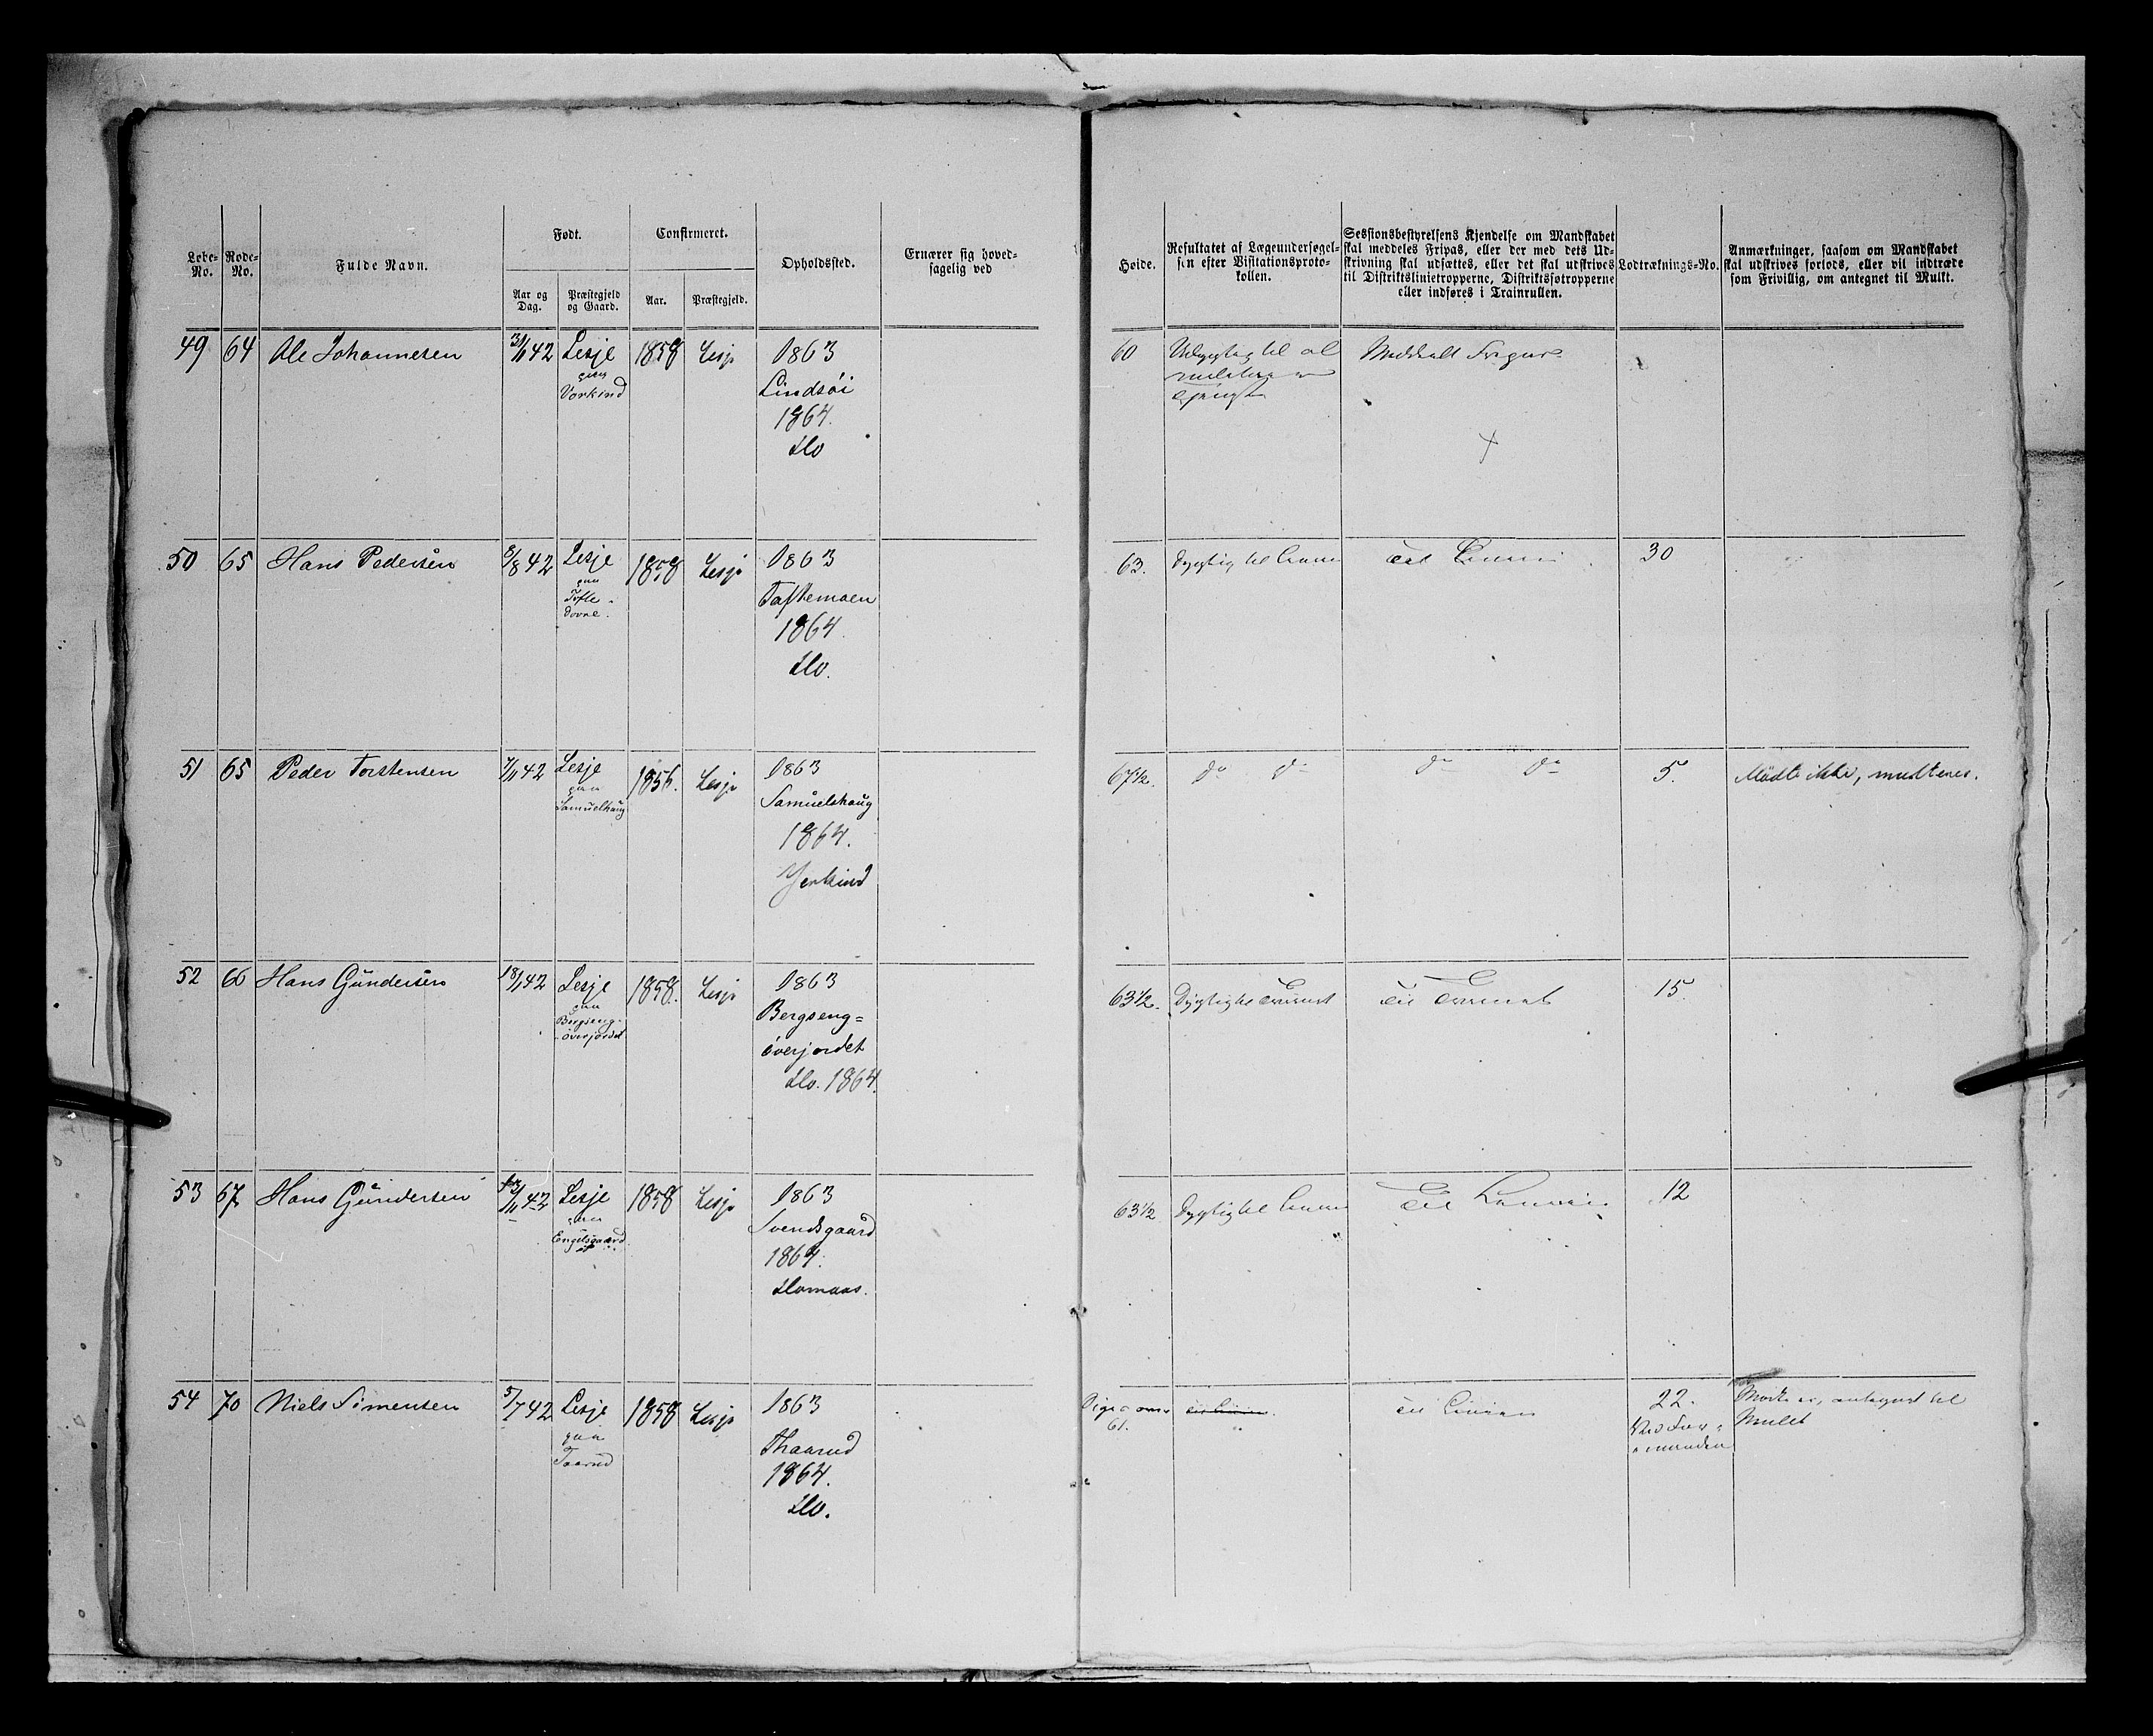 Løbe-No. Rode-No. Fulde Navn. Født. Confirmeret. Opholdssted. Ernærer sig hoved-
sagelig ved
Aar og Dag. Præstegjeld og Gaard. Aar. Præstegjeld.
Høide. Resultatet af Lægeundersøgel-
sen efter Visitationsproto-
kollen.
Sessionsbestyrelsens Kjendelse om Mandskabet
skal meddeles Fripas, eller der med dets Ud-
skrivning skal udsættes, eller det skal udskrives
til Distriktslinietropperne, Distriktsfotropperne
eller indføres i Trainrullen.
Lodtræknings-No.
Anmærkninger, saasom om Mandskabet
skal udskrives forlods, eller vil indtræde
som Frivillig, om antegnet til Mulkt.
49 64 Ole Johannesen 42 Lesje 1858 Lesje 1863
Vorkind
Lindsöi
1864.
Do
60 til al
Meddeelt
50 65 Hans Pedersen 8/8 42 Lesje 1858 Lesje 1863
paa
Tofte
Dovre.
Toftemoen
1864.
Do.
63. Dygtig til Linien Til Linien 30
51 65 Peder Torstensen 42 Lesje 1856. Lesje 1863
paa
Samuelhaug
Samuelshaug
1864.
Jerkind
67 1/2. do do do do 5. Mödte ikke, mulkteres.
52 66 Hans Gundersen 18/1 42 Lesje 1858. Lesje 1863
paa
Bergseng-
överjordet
Bergseng=
överjordet
Do. 1864.
63 1/2. Dygtig til Til 15.
53 67 Hans Gundersen 42 Lesje 1858 Lesje 1863
paa
Engelsgaard
Svendsgaard
1864.
63 1/2 Dygtig til Linien Til Linien 12
54 70 Niels Simensen 5/7 42 Lesje 1858 Lesje 1863
paa
Taarud
Thaarud
1864.
Do.
61.
Til Linien
22.
Mödte ei, antegnet til
Mulct